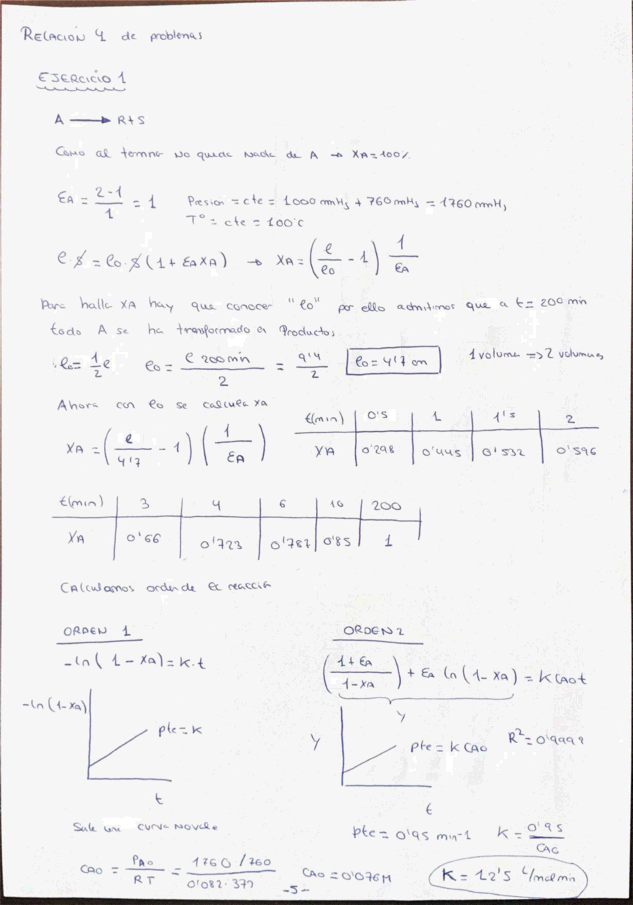 RELACIÓN 4 de problemas
EJERCICIO 1
A → R+S
Como al terminar no queda nada de A → XA=100%
εA = (2-1)/1 = 1 Presion = cte = 1000 mmHg + 760 mmHg = 1760 mmHg
Tº = cte = 100ºC
l·S = lo·S (1 + εA XA) → XA = (l/lo - 1) 1/εA
Para halla XA hay que conocer "lo" por ello admitimos que a t = 200 min
todo A se ha transformado en Productos
lo = 1/2 l lo = l 200 min / 2 = 9'4/2 lo = 4'7 cm 1 volumen => 2 volumenes
Ahora con lo se calcula XA
XA = (l/4'7 - 1) (1/εA)
t(min) | 0'5 | 1 | 1'5 | 2
XA | 0'298 | 0'445 | 0'532 | 0'596
t(min) | 3 | 4 | 6 | 10 | 200
XA | 0'66 | 0'723 | 0'787 | 0'85 | 1
Calculamos orden de la reacción
ORDEN 1
-ln(1-XA) = K·t
-ln(1-XA)
pte = K
t
Sale un curva
ORDEN 2
((1+εA)/(1-XA)) + εA ln(1-XA) = K CAO t
y
y
pte = K CAO R² = 0'9999
t
pte = 0'95 min-1 K = 0'95/CAO
CAO = PAO/RT = (1760/760)/(0'082·373) CAO = 0'076M
K = 12'5 l/mol min
-5-